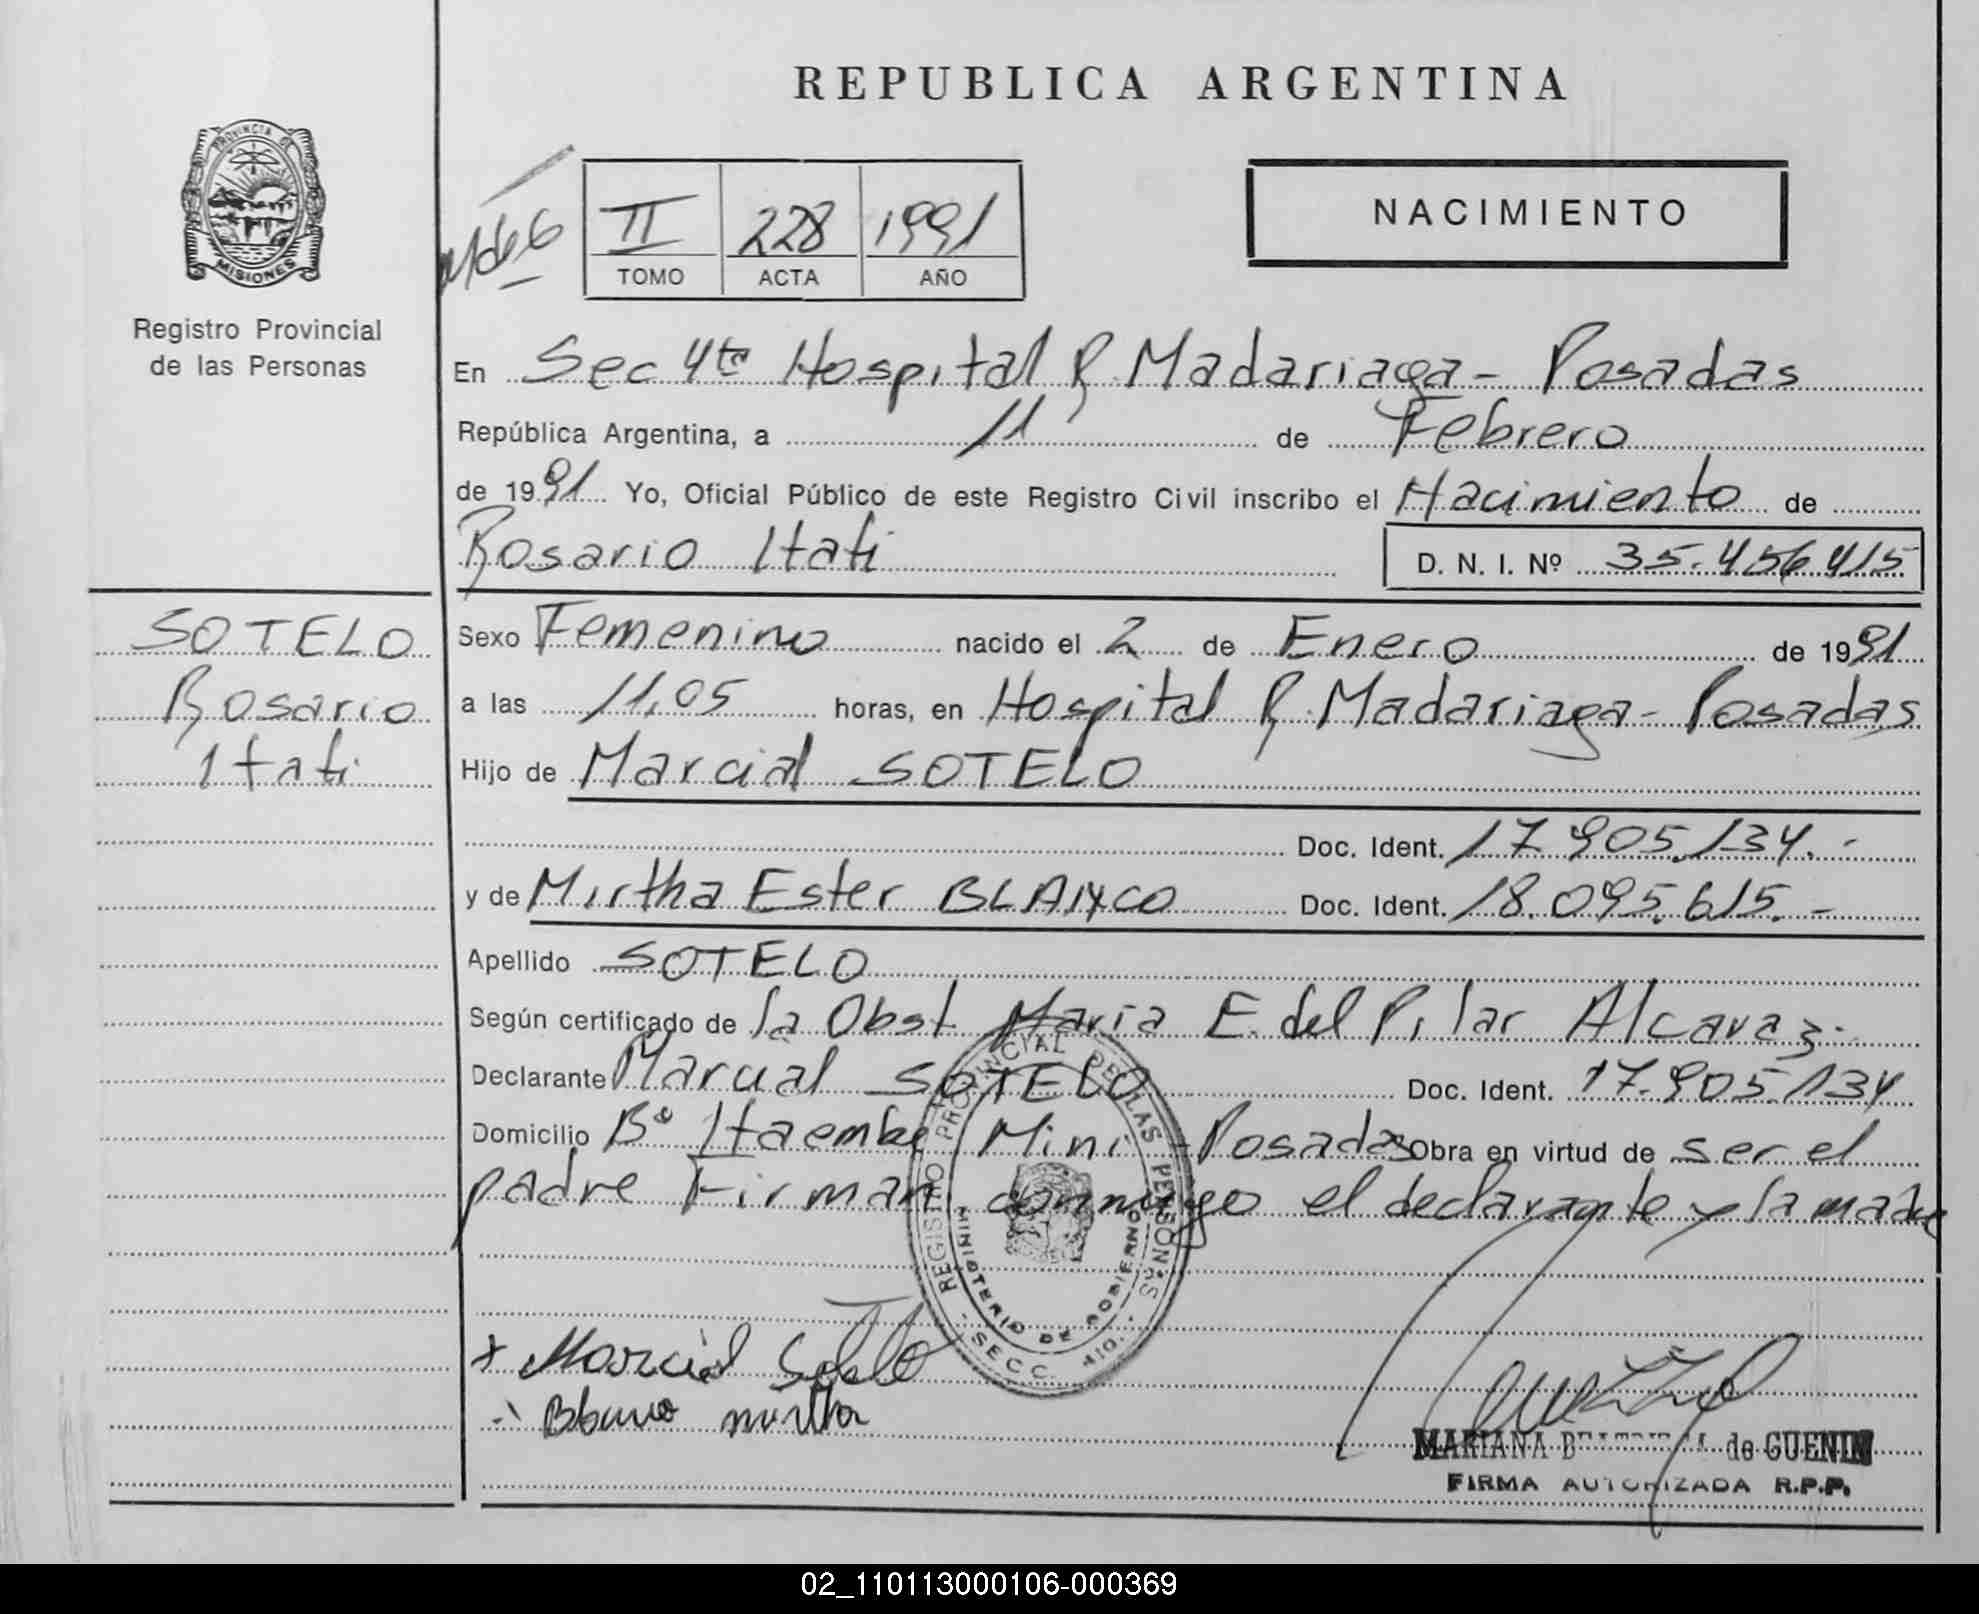 REPUBLICA ARGENTINA
PROVINCIA DE
MISIONES
Registro Provincial
de las Personas
II 228 1991
TOMO ACTA AÑO
NACIMIENTO
En Sec 4ta Hospital R. Madariaga - Posadas
República Argentina, a 11 de Febrero
de 1991 Yo, Oficial Público de este Registro Civil inscribo el Nacimiento de
Rosario Itati D. N. I. Nº 35.456.415
SOTELO
Rosario
Itati
Sexo Femenino nacido el 2 de Enero de 1991
a las 11,05 horas, en Hospital R. Madariaga - Posadas
Hijo de Marcial SOTELO
Doc. Ident. 17.905.134.-
y de Mirtha Ester BLANCO Doc. Ident. 18.095.615.-
Apellido SOTELO
Según certificado de la Obst Maria E. del Pilar Alcaraz.
Declarante Marcial SOTELO Doc. Ident. 17.905.134
Domicilio Bº Itaembe Mini - Posadas Obra en virtud de ser el
padre Firman conmigo el declarante y la madre
REGISTRO PROVINCIAL DE LAS PERSONAS
MINISTERIO DE GOBIERNO
- SECC. 4ta. -
+ Marcial Sotelo
Blanco mirtha
MARIANA de GUENIN
FIRMA AUTORIZADA R.P.P.
02_110113000106-000369